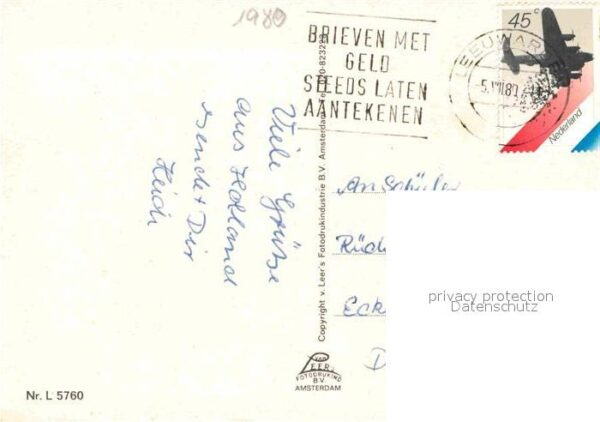 1980
BRIEVEN MET
GELD
STEEDS LATEN
AANTEKENEN
45 c
Nederland
Viele Grüße
aus Holland
sendet Dir
Heidi
Copyright v. Leer's Fotodrukindustrie B.V. Amsterdam
An Schüler
Rüd
Eck
D
privacy protection
Datenschutz
VAN
LEER'S
FOTODRUKIND
B.V.
AMSTERDAM
Nr. L 5760